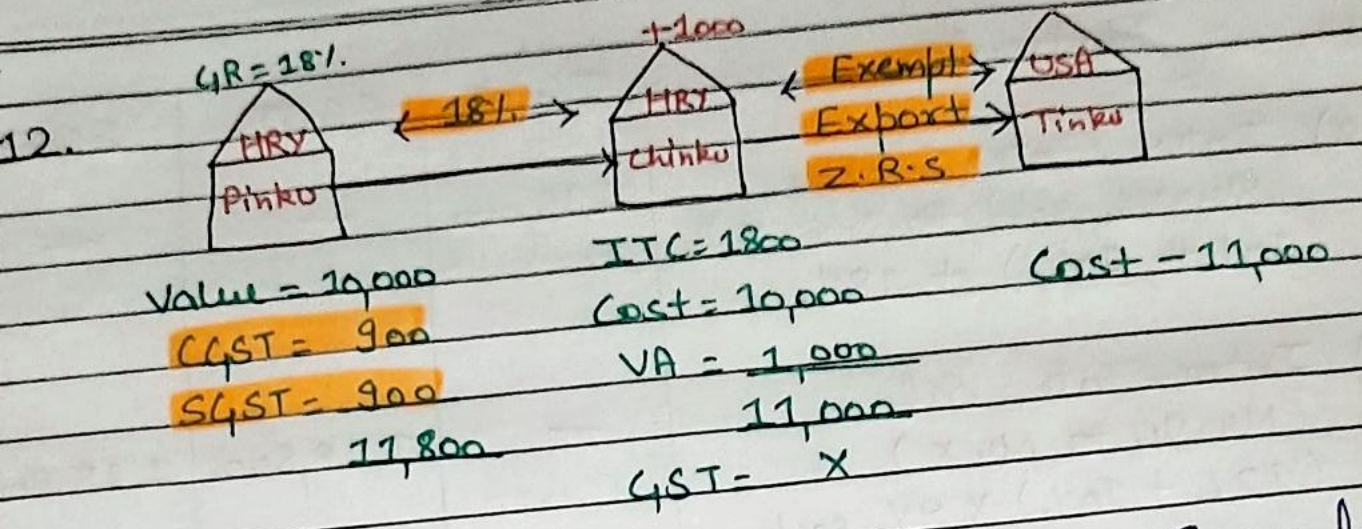 12.
GR = 18%.
HRY
Pinku
18%
+1000
HRY
Chinku
Exempt
Export
Z.R.S
USA
Tinku
Value = 10,000
CGST = 900
SGST = 900
11,800
ITC = 1800
Cost = 10,000
VA = 1,000
11,000
GST - X
Cost - 11,000